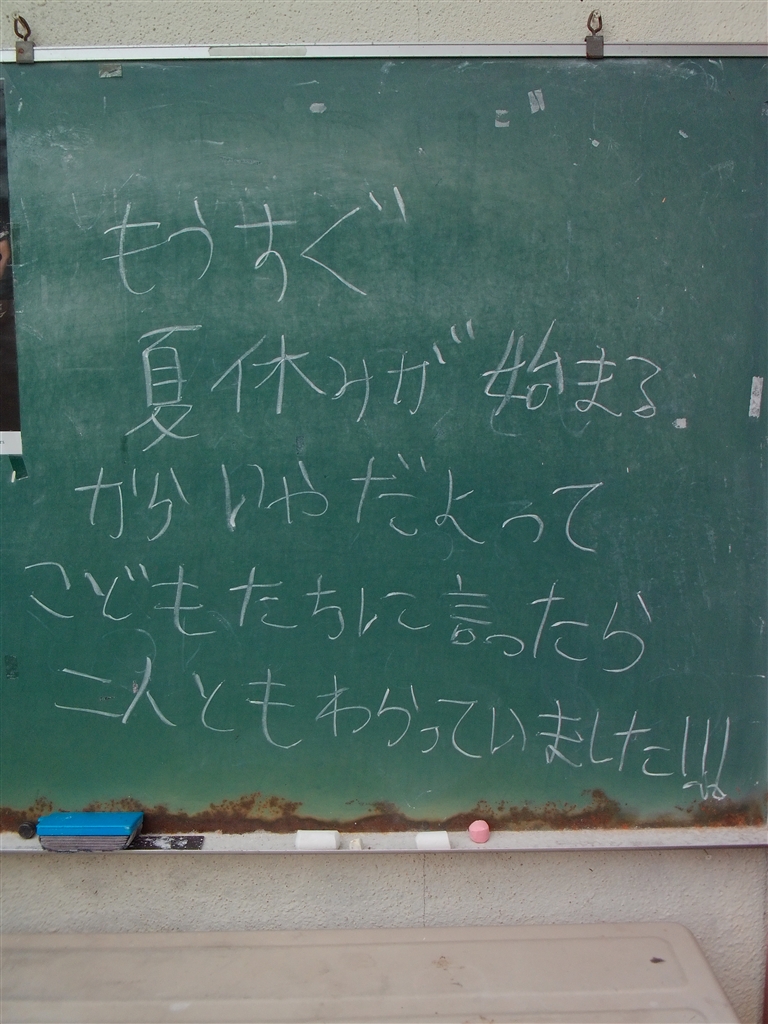 もうすぐ
夏休みが始まる
からいやだよって
こどもたちに言ったら
二人ともわかっていました!!!